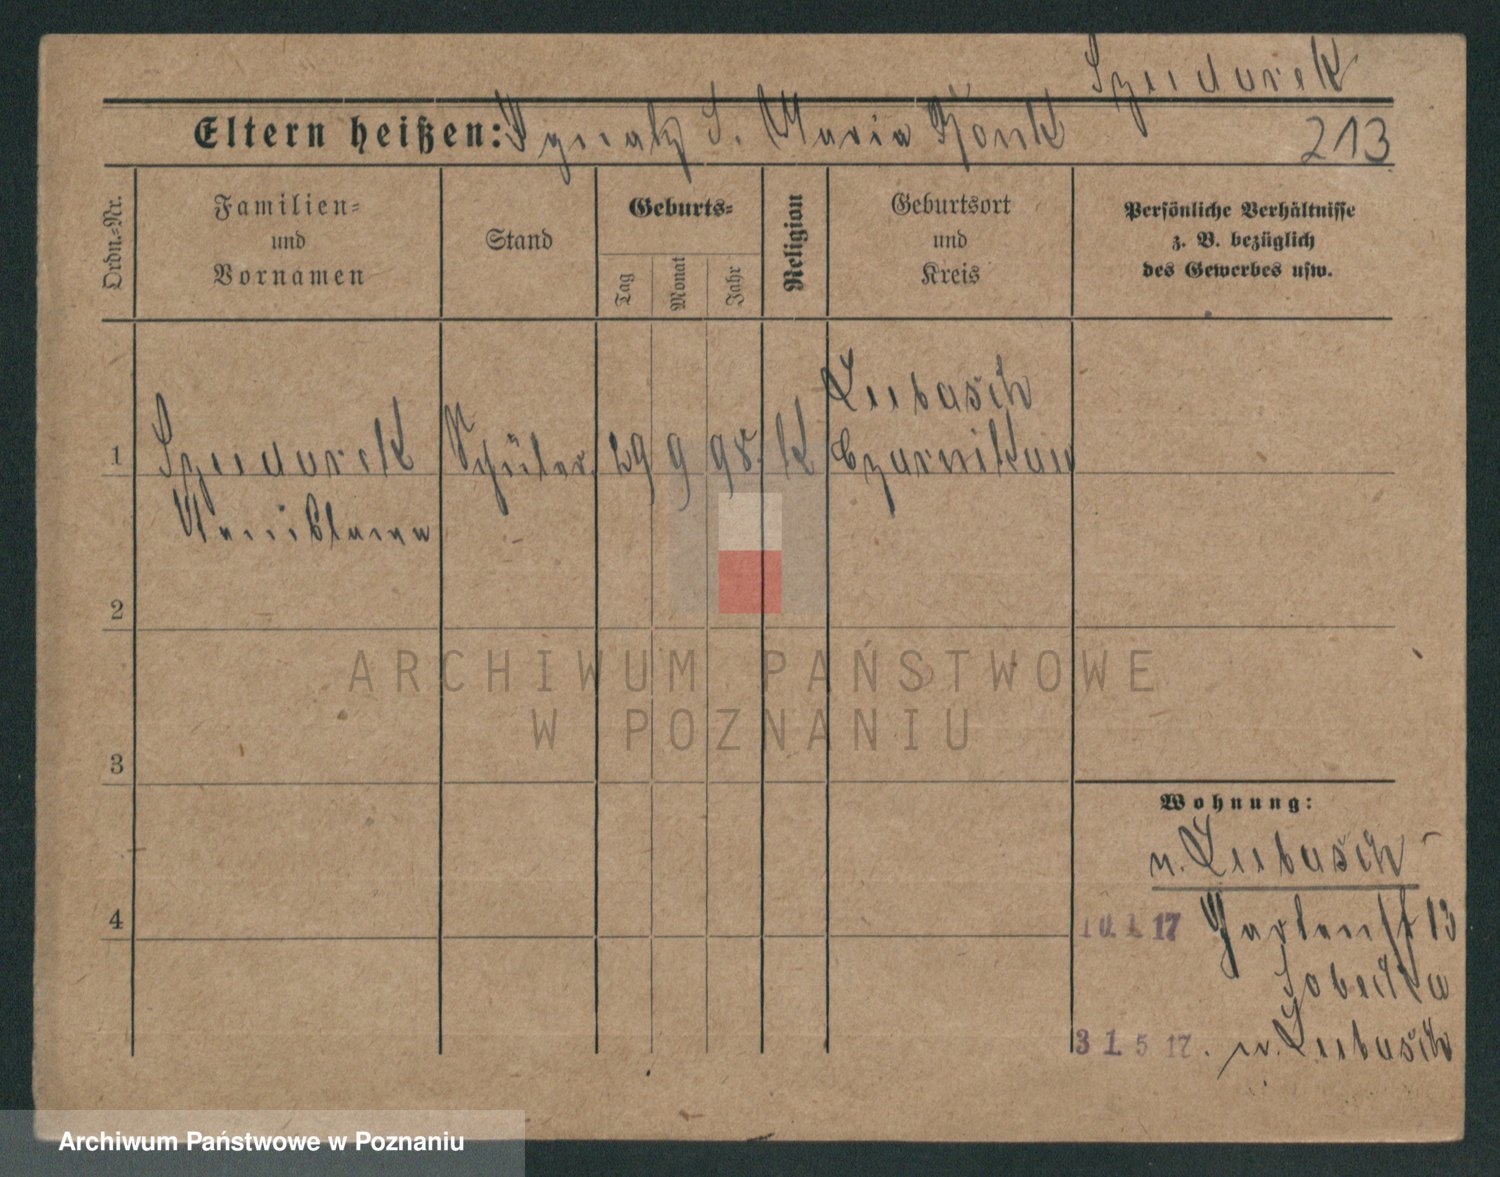 213
Eltern heißen: Ignatz S. Maria
Ordn.-Nr.
Familien-
und
Vornamen
Stand
Geburts-
Tag
Monat
Jahr
Religion
Geburtsort
und
Kreis
Persönliche Verhältnisse
z. B. bezüglich
des Gewerbes usw.
Lubasch
1 Schüler 29 9 98. K Czarnikau
2
3
4
Wohnung:
n. Lubasch
10. 1. 17 Gartenst 13
31. 5 17. n. Lubasch
ARCHIWUM PAŃSTWOWE
W POZNANIU
Archiwum Państwowe w Poznaniu